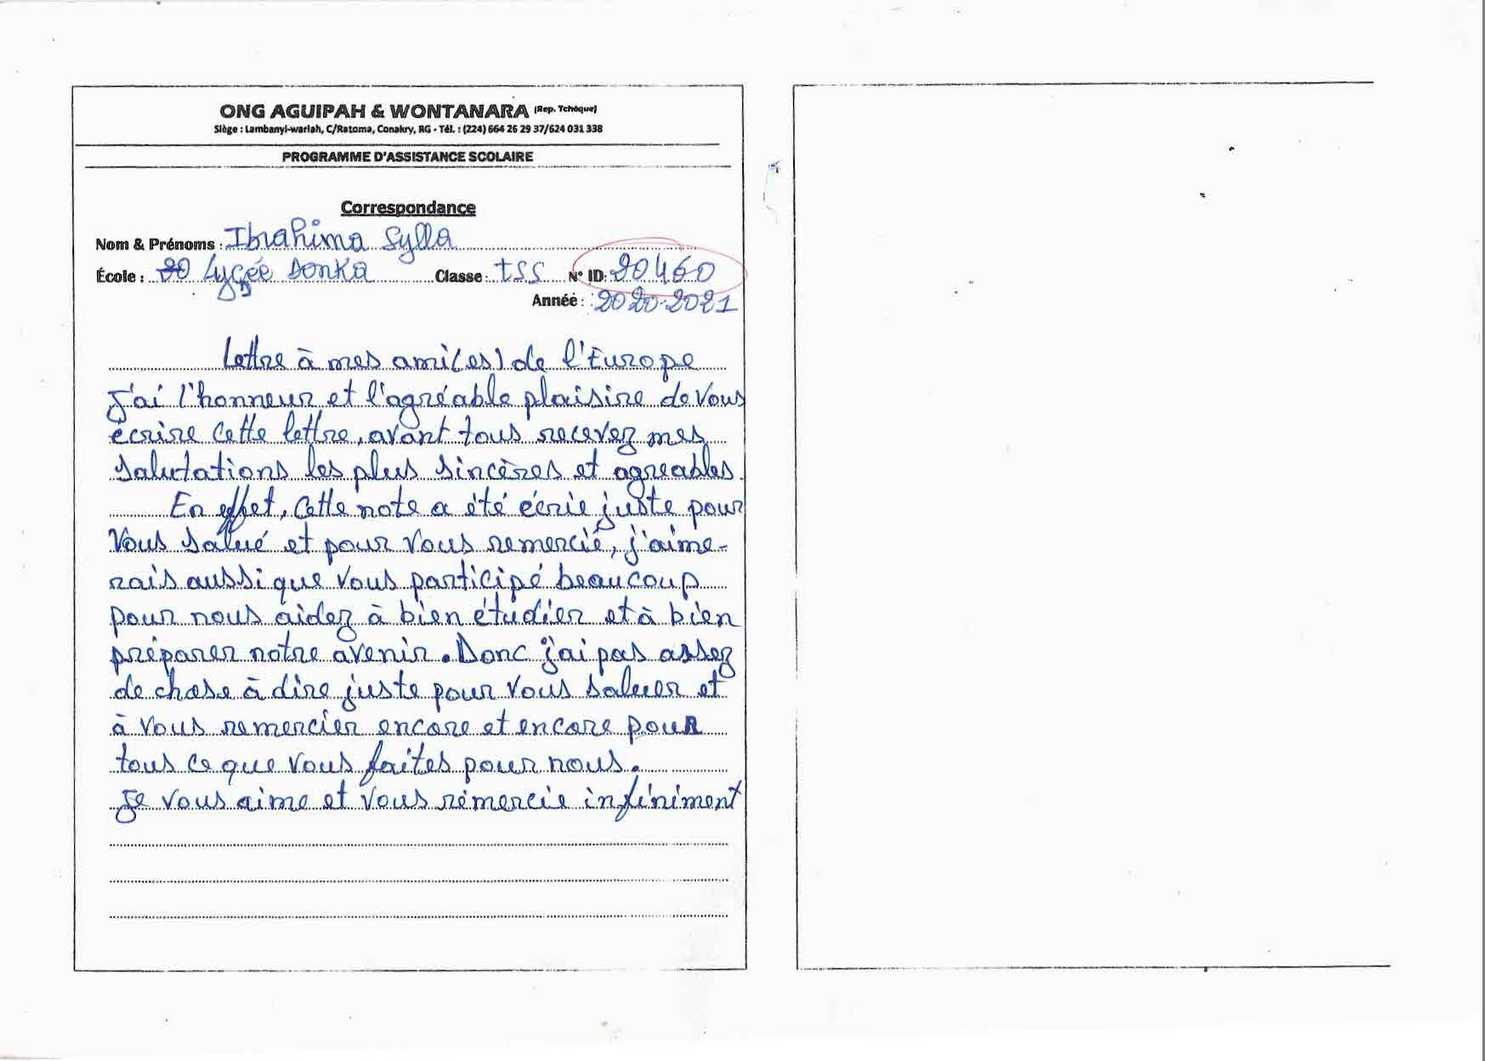 ONG AGUIPAH & WONTANARA (Rep. Tchèque)
Siège : Lambanyi-wariah, C/Ratoma, Conakry, RG - Tél. : (224) 664 26 29 37/624 031 338
PROGRAMME D'ASSISTANCE SCOLAIRE
Correspondance
Nom & Prénoms : Ibrahima Sylla
École : Lycée Donka Classe : TSS N° ID: 20460
Année : 2020-2021
Lettre à mes ami(es) de l'Europe
J'ai l'honneur et l'agréable plaisire de vous
écrire cette lettre, avant tous recevez mes
salutations les plus sincères et agreables.
En effet, cette note a été écrie juste pour
Vous salué et pour vous remercié, j'aime-
rais aussi que vous participé beaucoup
pour nous aidez à bien étudier et à bien
préparer notre avenir. Donc j'ai pas assez
de chose à dire juste pour vous saluer et
à vous remercier encore et encore pour
tous ce que vous faites pour nous.
Je vous aime et vous rémercie infiniment